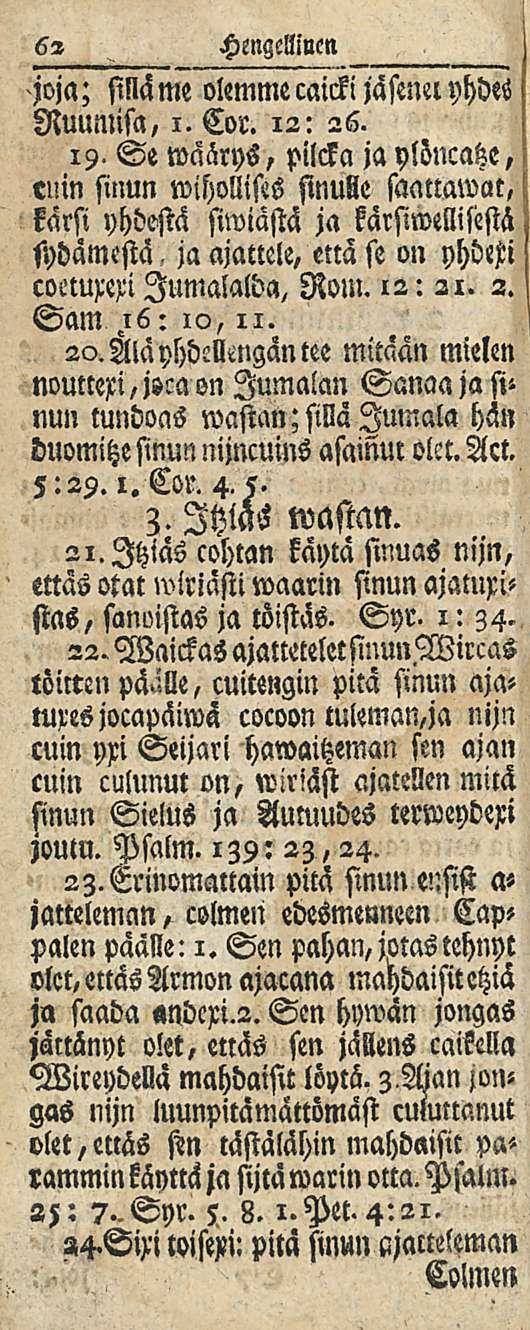 62 Hengellinen
joja; sillä me olemme caicki jäsenet yhdes
Ruumisa, 1. Cor. 12: 26.
19. Se wäärys, pilcka ja ylöncatze,
cuin sinun wihollises sinulle saattawat,
kärsi yhdestä siwiästä ja kärsiwellisestä
sydämestä, ja ajattele, että se on yhdexi
coetuxexi Jumalalda, Rom. 12: 21. 2.
Sam 16: 10, 11.
20. Älä yhdellengän tee mitään mielen
nouttexi, joca on Jumalan Sanaa ja si-
nun tundoas wastan; sillä Jumala hän
duomitze sinun nijncuins asainut olet. Act.
5:29. 1. Cor. 4. 5.
3. Itziäs wastan.
21. Itziäs cohtan käytä sinuas nijn,
ettäs otat wiriästi waarin sinun ajatuxi-
stas, sanoistas ja töistäs. Syr. 1: 34.
22. Waickas ajattetelet sinun Wircas
töitten päälle, cuitengin pitä sinun aja-
tuxes jocapäiwä cocoon tuleman, ja nijn
cuin yxi Seijari hawaitzeman sen ajan
cuin culunut on, wiriäst ajatellen mitä
sinun Sielus ja Autuudes terweydexi
joutu. Psalm. 139: 23, 24.
23. Erinomattain pitä sinun ensist a-
jatteleman, colmen edesmenneen Cap-
palen päälle: 1. Sen pahan, jotas tehnyt
olet, ettäs Armon ajacana mahdaisit etziä
ja saada andexi. 2. Sen hywän jongas
jättänyt olet, ettäs sen jällens caikella
Wireydellä mahdaisit löytä. 3. Ajan jon-
gas nijn luunpitämättömäst culuttanut
olet, ettäs sen tästälähin mahdaisit pa-
rammin käyttä ja sijtä warin otta. Psalm.
25: 7. Syr. 5. 8. 1. Pet. 4:21.
24. Sixi toisexi: pitä sinun ajatteleman
Colmen